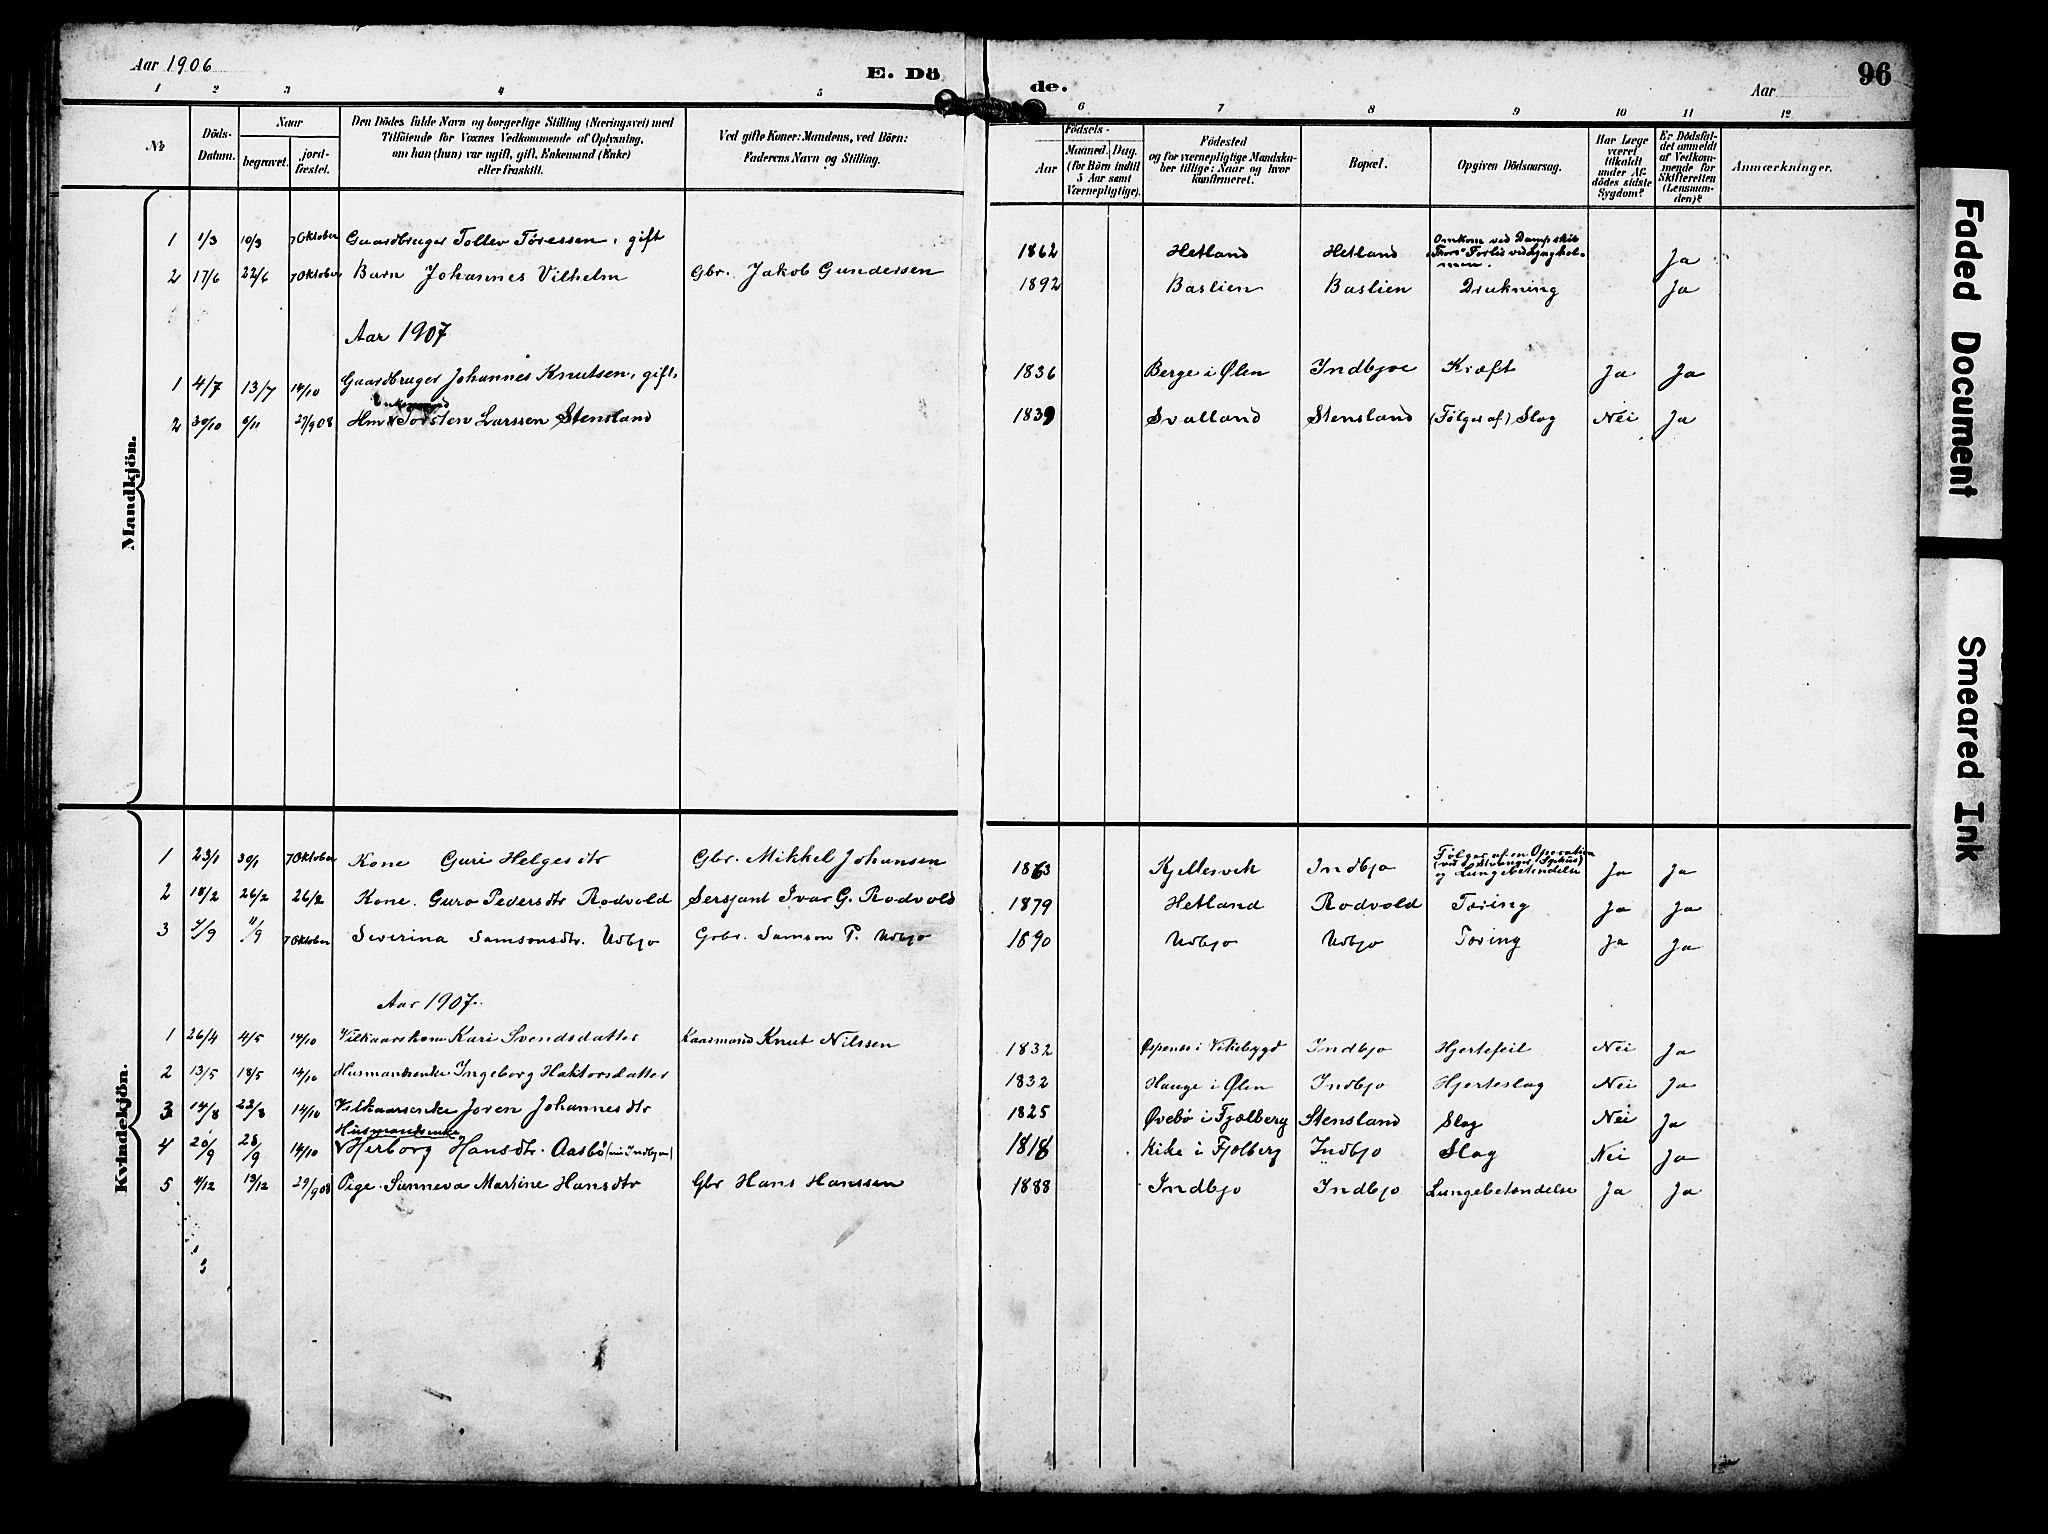 Aar 1906 E. Dö de. Aar 96
1 2 3 4 5 6 7 8 9 10 11 12
№ Döds-Datum. Naar begravet. jordfæstet. Den Dödes fulde Navn og borgerlige Stilling (Næringsvei) med Tilföiende for Voxnes Vedkommende af Oplysning, om han (hun) var ugift, gift, Enkemand (Enke) eller fraskilt. Ved gifte Koner: Mandens, ved Börn: Faderens Navn og Stilling. Födsels- Aar Maaned. Dag. (for Börn indtil 5 Aar samt Værnepligtige). Födested og for værnepligtige Mandskaber tillige: Naar og hvor konfirmeret. Bopæl. Opgiven Dödsaarsag. Har Læge været tilkaldt under Afdödes sidste Sygdom? Er Dödsfaldet anmeldt af Vedkommende for Skifteretten (Lensmanden)? Anmærkninger.
Mandkjön.
1 1/3 10/3 7 Oktober Gaardbruger Tollev Tøressen, gift 1862 Hetland Hetland Omkom ved Dampskib "Thors" Forlis ved holmen. Ja
2 17/6 22/6 7 Oktober Barn Johannes Vilhelm Gbr. Jakob Gundersen 1892 Baslien Baslien Drukning Ja
Aar 1907
1 4/7 13/7 14/10 Gaardbruger Johannes Knutsen, gift. 1836 Berge i Ølen Indbjoe Kræft Ja Ja
Enkemand
2 30/10 6/11 29/908 Hm Torsten Larssen Stensland 1839 Svalland Stensland (Følger af) Slag Nei Ja
Kvindekjön.
1 23/1 30/1 7 Oktober Kone Guri Helgesdtr Gbr. Mikkel Johansen 1863 Kjellesvik Indbjo Følger af en Operation (ved Stvanger Sgehus) og Lungebetendelse Ja Ja
2 18/2 26/2 26/2 Kone. Guro Pedersdtr Rodvold Sersjant Ivar G. Rodvold 1879 Hetland Rodvold Tæring Ja Ja
3 4/9 11/9 7 Oktober Severina Samsonsdtr. Udbjo Grbr. Samson P. Udbjo 1890 Udbjo Udbjo Tæring Ja Ja
Aar 1907.
1 26/4 4/5 14/10 Vilkaarskone Kari Svendsdatter Kaarmand Knut Nilssen 1832 i Vikebygd Indbjo Hjertefeil Nei Ja
2 13/5 18/5 14/10 Husmandsenke Ingeborg Haktorsdatter 1832 Hauge i Ølen Indbjo Hjerteslag Nei Ja
3 14/8 22/8 14/10 Vilkaarsenke Joren Johannesdtr 1825 Øvebø i Fjælberg Stensland Slag Nei Ja
Husmandsenke
4 20/9 28/9 14/10 Herborg Hansdtr. Aasbø (Indbjoe) 1818 Kike i Fjælberg Indbjo Slag Nei Ja
5 11/12 19/12 29/908 Pige Sunneva Martine Hansdtr Gbr Hans Hanssen 1888 Indbjo Indbjo Lungebetændelse Ja Ja
Faded Document
Smeared Ink